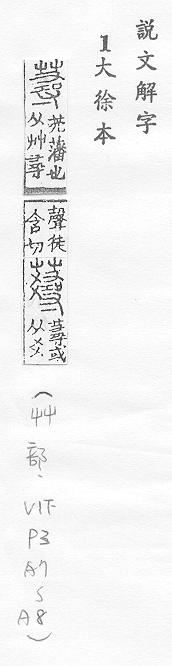 説文解字
1大徐本
蕁
芫藩也
从艸尋
聲徒
含切
蕁或
从爻
（艸部、V1下 P3 A7 〜 A8）